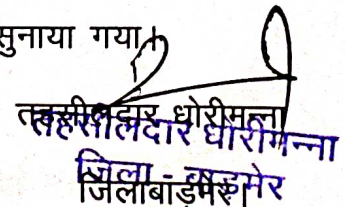 सुनाया गया।
तहसीलदार धोरीमन्ना
तहसीलदार धोरीमन्ना
जिला - बाड़मेर
जिलाबाड़मेर।